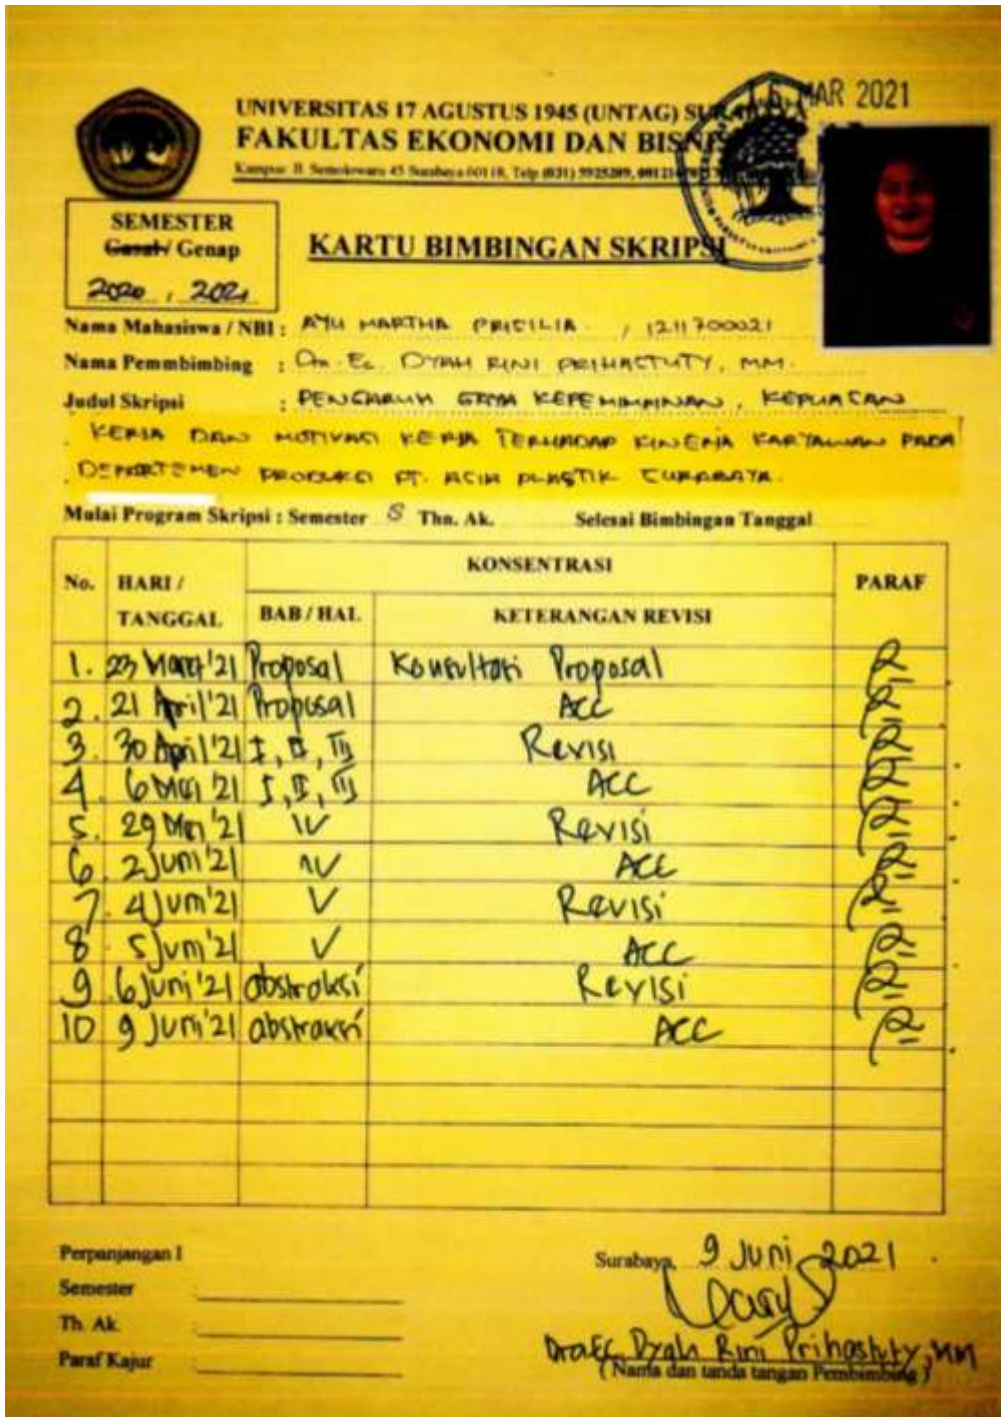 16 MAR 2021
UNIVERSITAS 17 AGUSTUS 1945 (UNTAG)
FAKULTAS EKONOMI DAN BISNIS
Kampus: Jl. Semolowaru 45 Surabaya 60118, Telp (031) 5925289,
SEMESTER
Gasal / Genap
2020 , 2021
KARTU BIMBINGAN SKRIPSI
Nama Mahasiswa / NBI : AYU MARTHA PRICILIA / 1211700021
Nama Pemmbimbing : Dra. Ec. DYAH RINI PRIHASTUTY, MM.
Judul Skripsi : PENGARUH GAYA KEPEMIMPINAN, KEPUASAN
KERJA DAN MOTIVASI KERJA TERHADAP KINERJA KARYAWAN PADA
DEPARTEMEN PRODUKSI PT. PLASTIK SURABAYA.
Mulai Program Skripsi : Semester 8 Thn. Ak. Selesai Bimbingan Tanggal
No. HARI / TANGGAL KONSENTRASI PARAF
BAB / HAL KETERANGAN REVISI
1. 23 Maret '21 Proposal Konsultasi Proposal
2. 21 April '21 Proposal ACC
3. 30 April '21 I, II, III Revisi
4. 6 Mei '21 I, II, III ACC
5. 29 Mei '21 IV Revisi
6. 2 Juni '21 IV ACC
7. 4 Juni '21 V Revisi
8 5 Juni '21 V ACC
9 6 Juni '21 abstraksi Revisi
10 9 Juni '21 abstraksi ACC
Perpanjangan I
Semester :
Th. Ak. :
Paraf Kajur :
Surabaya, 9 Juni 2021
Dra. Ec. Dyah Rini Prihastuty, MM
( Nama dan tanda tangan Pembimbing )